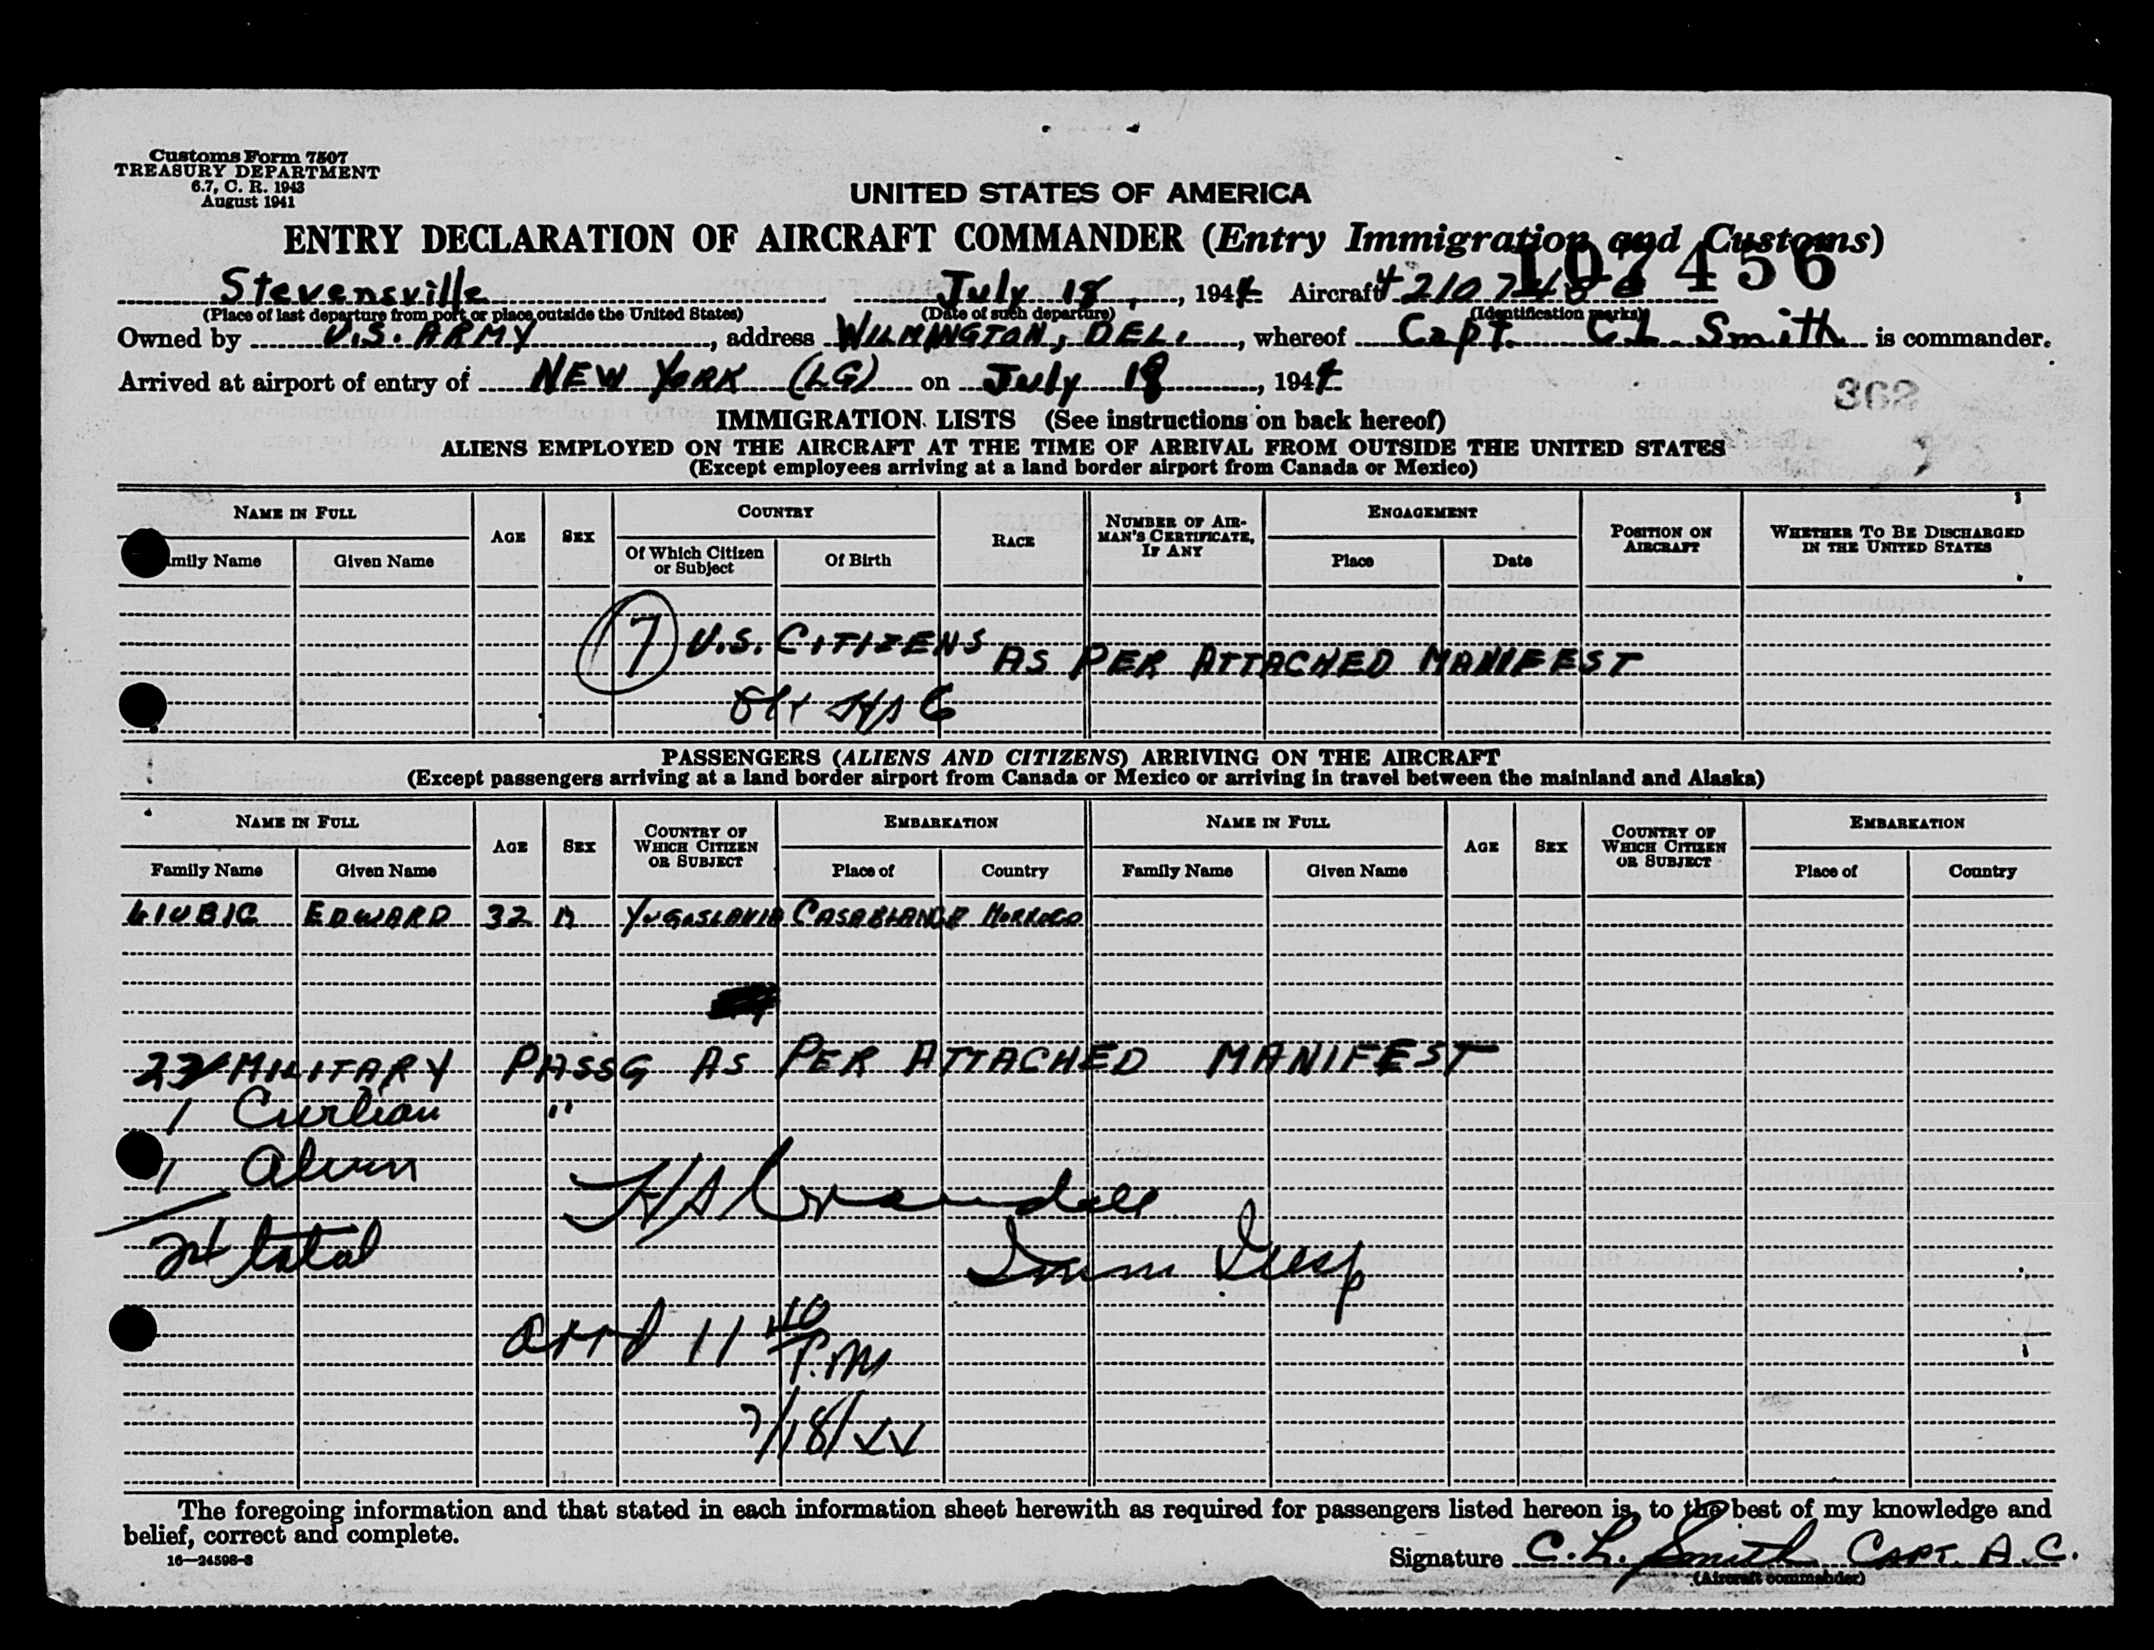 Customs Form 7507
TREASURY DEPARTMENT
6.7, C. R. 1943
August 1941
UNITED STATES OF AMERICA
ENTRY DECLARATION OF AIRCRAFT COMMANDER (Entry Immigration and Customs)
107456
Stevensville July 18, 1944 Aircraft
(Place of last departure from port or place outside the United States) (Date of such departure) (Identification marks)
Owned by U.S. ARMY, address WILMINGTON, DEL., whereof Capt. C.L. Smith is commander.
Arrived at airport of entry of NEW YORK (LG) on July 18, 1944
368
IMMIGRATION LISTS (See instructions on back hereof)
ALIENS EMPLOYED ON THE AIRCRAFT AT THE TIME OF ARRIVAL FROM OUTSIDE THE UNITED STATES
(Except employees arriving at a land border airport from Canada or Mexico)
NAME IN FULL AGE SEX COUNTRY RACE NUMBER OF AIRMAN'S CERTIFICATE, IF ANY ENGAGEMENT POSITION ON AIRCRAFT WHETHER TO BE DISCHARGED IN THE UNITED STATES
mily Name Given Name Of Which Citizen or Subject Of Birth Place Date
7 U.S. CITIZENS AS PER ATTACHED MANIFEST
PASSENGERS (ALIENS AND CITIZENS) ARRIVING ON THE AIRCRAFT
(Except passengers arriving at a land border airport from Canada or Mexico or arriving in travel between the mainland and Alaska)
NAME IN FULL AGE SEX COUNTRY OF WHICH CITIZEN OR SUBJECT EMBARKATION NAME IN FULL AGE SEX COUNTRY OF WHICH CITIZEN OR SUBJECT EMBARKATION
Family Name Given Name Place of Country Family Name Given Name Place of Country
LIUBIC EDWARD 32 M YUGOSLAVIA CASABLANCA MORROCO
MILITARY PASSG AS PER ATTACHED MANIFEST
1 Civilian "
1 Alien
H S Crandall
total
Imm Insp
arrd 11 40 P.M
7/18/44
The foregoing information and that stated in each information sheet herewith as required for passengers listed hereon is, to the best of my knowledge and
belief, correct and complete.
16—24598-3
Signature C. L. Smith CAPT. A.C.
(Aircraft commander)